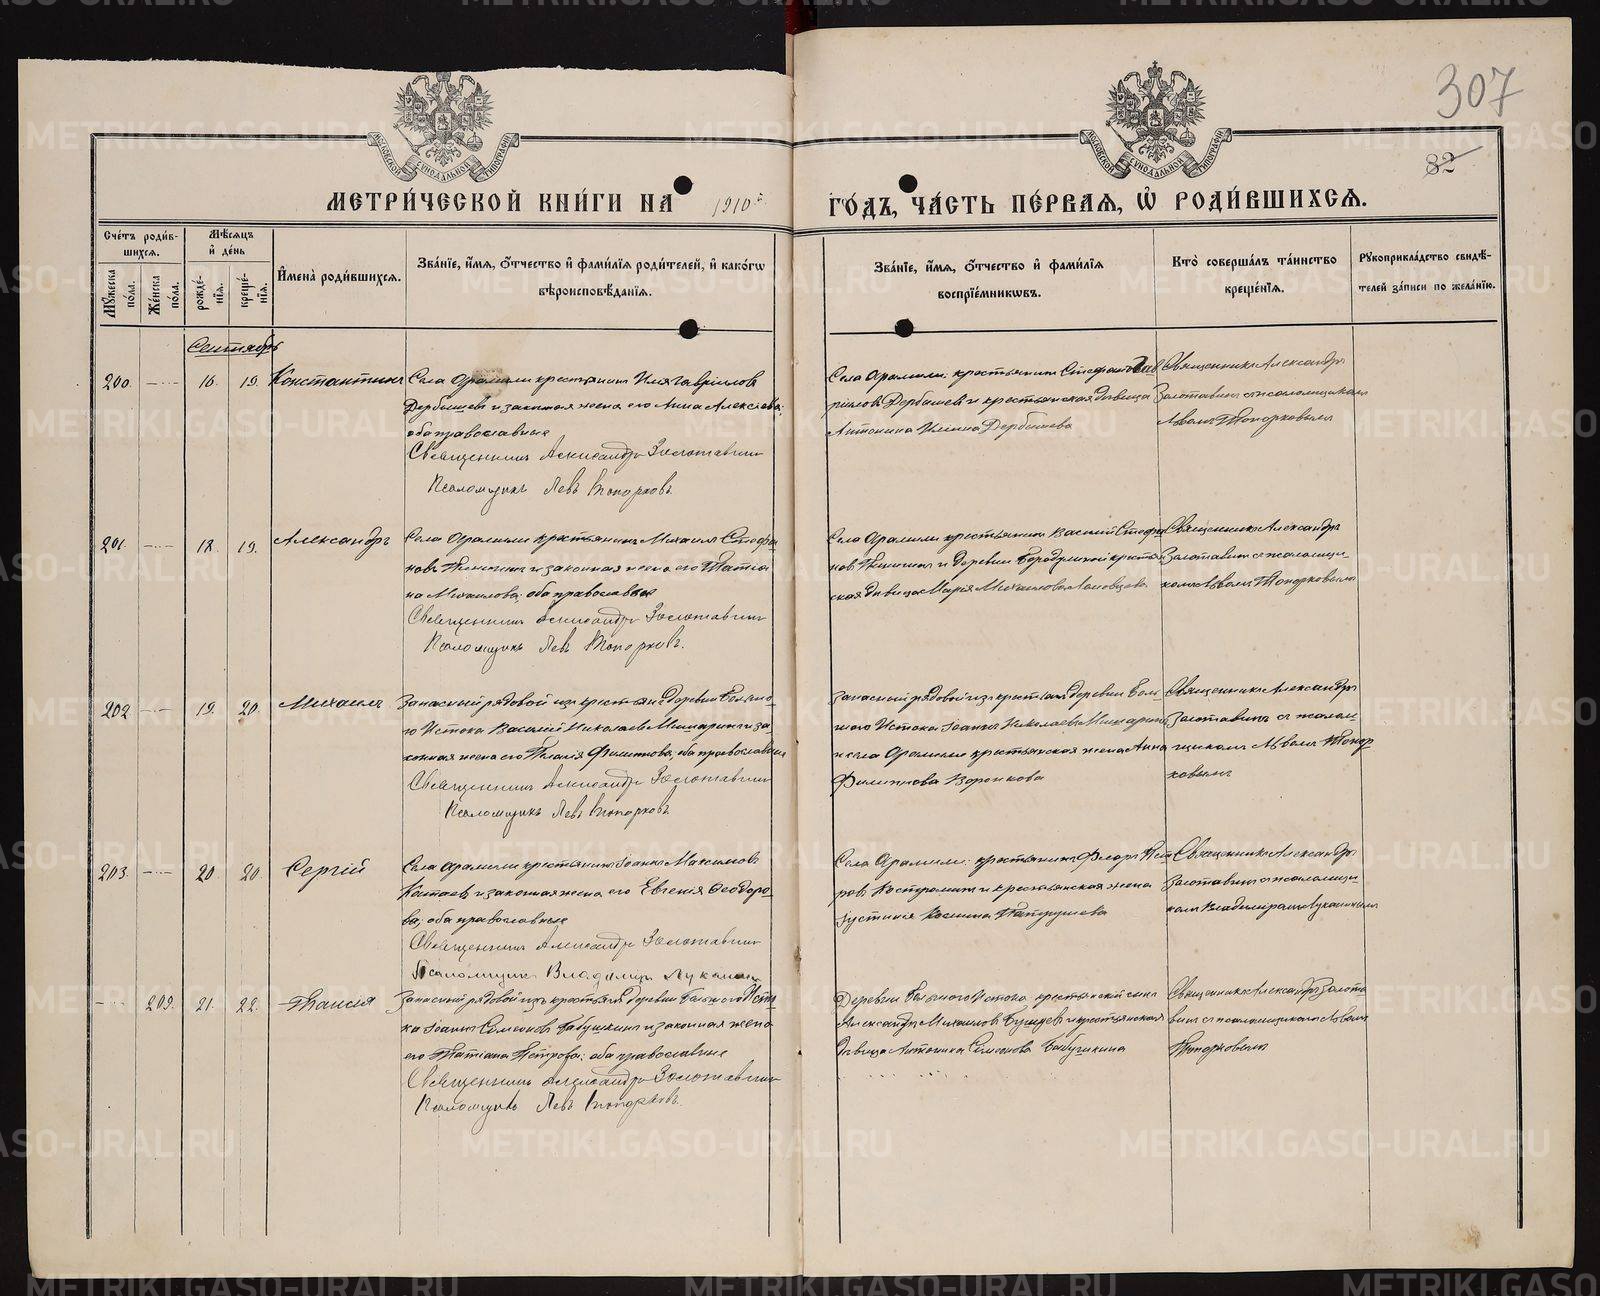 307
82
МОСКОВСКОЙ СѴНОДАЛЬНОЙ ТИПОГРАФІИ
МОСКОВСКОЙ СѴНОДАЛЬНОЙ ТИПОГРАФІИ
МЕТРИ́ЧЕСКОЙ КНИ́ГИ НА 1910 й ГО́ДЪ, ЧА́СТЬ ПЕ́РВАѦ, Ѡ҆ РОДИ́ВШИХСѦ.
Сче́тъ роди́в-
шихсѧ.
Мѣ́сѧцъ
и҆ де́нь
Мꙋ́жеска по́ла.
Же́нска по́ла.
рожде́-
нїѧ.
креще́-
нїѧ.
И҆мена̀ роди́вшихсѧ.
Зва́нїе, и҆́мѧ, ѻ҆́тчество и҆ фами́лїѧ роди́телей, и҆ како́гѡ
вѣроисповѣ́данїѧ.
Зва́нїе, и҆́мѧ, ѻ҆́тчество и҆ фами́лїѧ
воспрїе́мникѡвъ.
Кто̀ соверша́лъ та́инство
креще́нїѧ.
Рꙋкоприкла́дство свидѣ́-
телей за́писи по жела́нїю.
Сентябрь
200. 16. 19. Константинъ
Села Арамили крестьянинъ Илія Гавріиловъ
Дербышевъ и законная жена его Анна Алексѣева;
оба православные
Священникъ Александръ Золотавинъ
Псаломщикъ Левъ Топорковъ.
Села Арамили: крестьянинъ Стефанъ Гав
ріиловъ Дербышевъ и крестьянская дѣвица
Антонина Иліина Дербышева
Священникъ Александръ
Золотавинъ съ псаломщикомъ
Львомъ Топорковымъ
201. 18. 19. Александръ
Села Арамили крестьянинъ Михаилъ Стефа
новъ и законная жена его Татіа
на Михаилова; оба православные
Священникъ Александръ Золотавинъ
Псаломщикъ Левъ Топорковъ.
Села Арамили крестьянинъ Василій Стефа
новъ и деревни Бородулиной крестьян
ская дѣвица Марія Михаилова
Священникъ Александръ
Золотавинъ съ псаломщи
комъ Львомъ Топорковымъ
202 19. 20. Михаилъ
Запасный рядовой изъ крестьянъ деревни Больша-
го Истока Василій Николаевъ Мишаринъ и за
конная жена его Пелагія Филиппова; оба православные
Священникъ Александръ Золотавинъ
Псаломщикъ Левъ Топорковъ.
Запасный рядовой изъ крестьянъ деревни Боль
шаго Истока Іоаннъ Николаевъ Мишаринъ
и села Арамили крестьянская жена Анна
Филиппова Воронкова
Священникъ Александръ
Золотавинъ съ псалом
щикомъ Львомъ Топор
ковымъ
203. 20 20. Сергій
Села Арамили крестьянинъ Іоаннъ Максимовъ
Копаевъ и законная жена его Евгенія Ѳеодоро-
ва; оба православные
Священникъ Александръ Золотавинъ
Псаломщикъ Владимиръ Луканинъ
Села Арамили: крестьянинъ Флоръ Пет
ровъ Костромин и крестьянская жена
Іустинія Космина Патрушева
Священникъ Александръ
Золотавинъ съ псаломщи-
комъ Владимиромъ Луканинымъ
209. 21. 22. Таисія
Запасный рядовой изъ крестьянъ деревни Большаго Исто
ка Іоаннъ Семеоновъ Бабушкинъ и законная жена
его Татіана Петрова; оба православные
Священникъ Александръ Золотавинъ
Псаломщикъ Левъ Топорковъ.
Деревни Большаго Истока крестьянскій сынъ
Александръ Михаиловъ и крестьянская
дѣвица Антонина Семеонова Бабушкина
Священникъ Александръ Золота
винъ съ псаломщикомъ Львомъ
Топорковымъ
METRIKI.GASO-URAL.RU